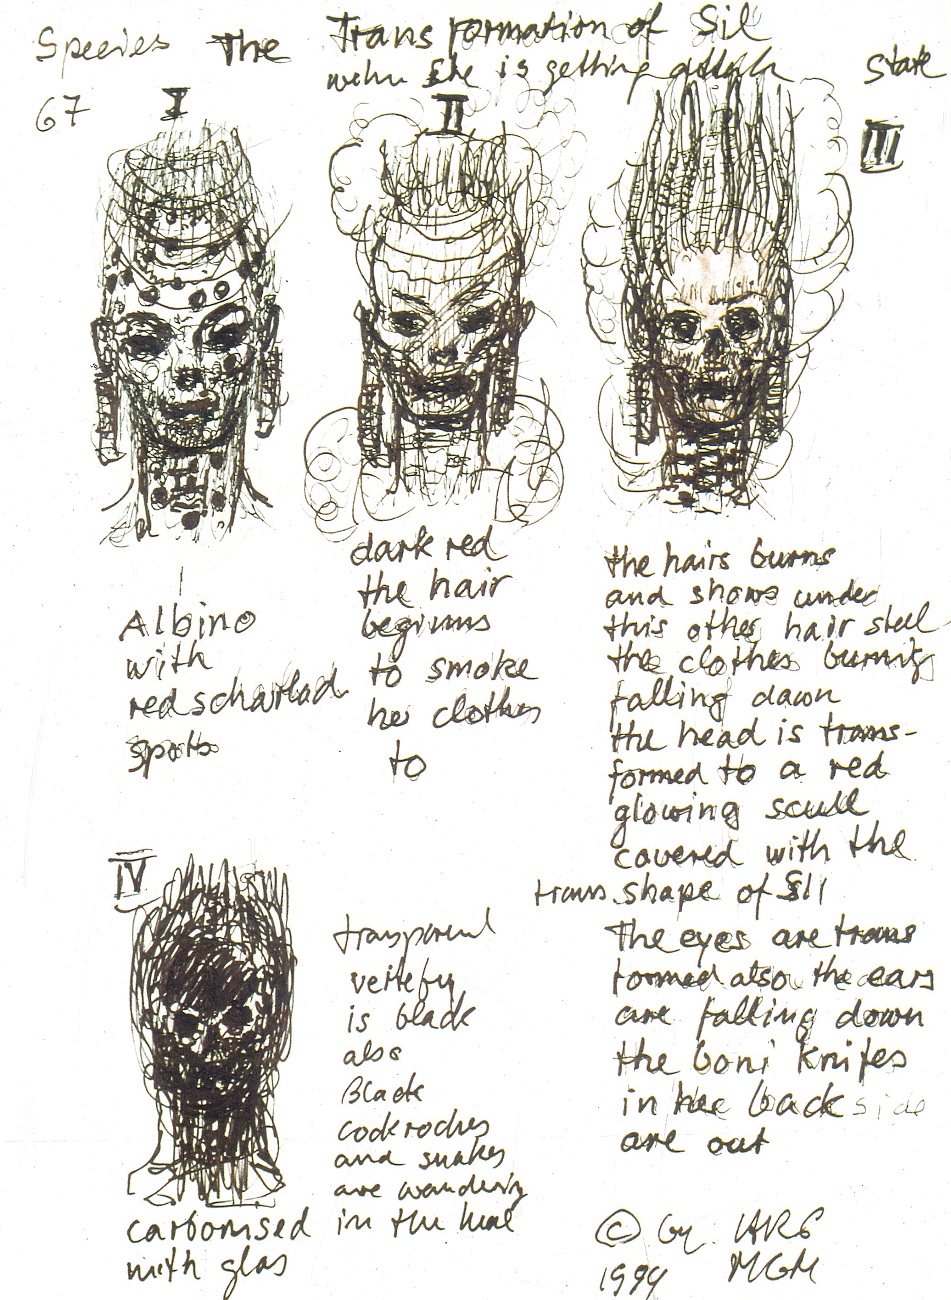 Species The Transformation of Sil
wehn She is getting attack
State
67
I
II
III
Albino
with
red scharlach
spots
dark red
the hair
beginns
to smoke
her clothes
to
the hairs burns
and shows under
this other hair steel
the clothes burning
falling dawn
the head is trans-
formed to a red
glowing scull
covered with the
trans. shape of Sil
The eyes are trans
formed also the ears
are falling down
the boni Knifes
in the back side
are out
IV
carbonised
with glas
transparent
is black
also
Black
cockroches
and snakes
are wandering
in the head
© by HRG
1994 MGM